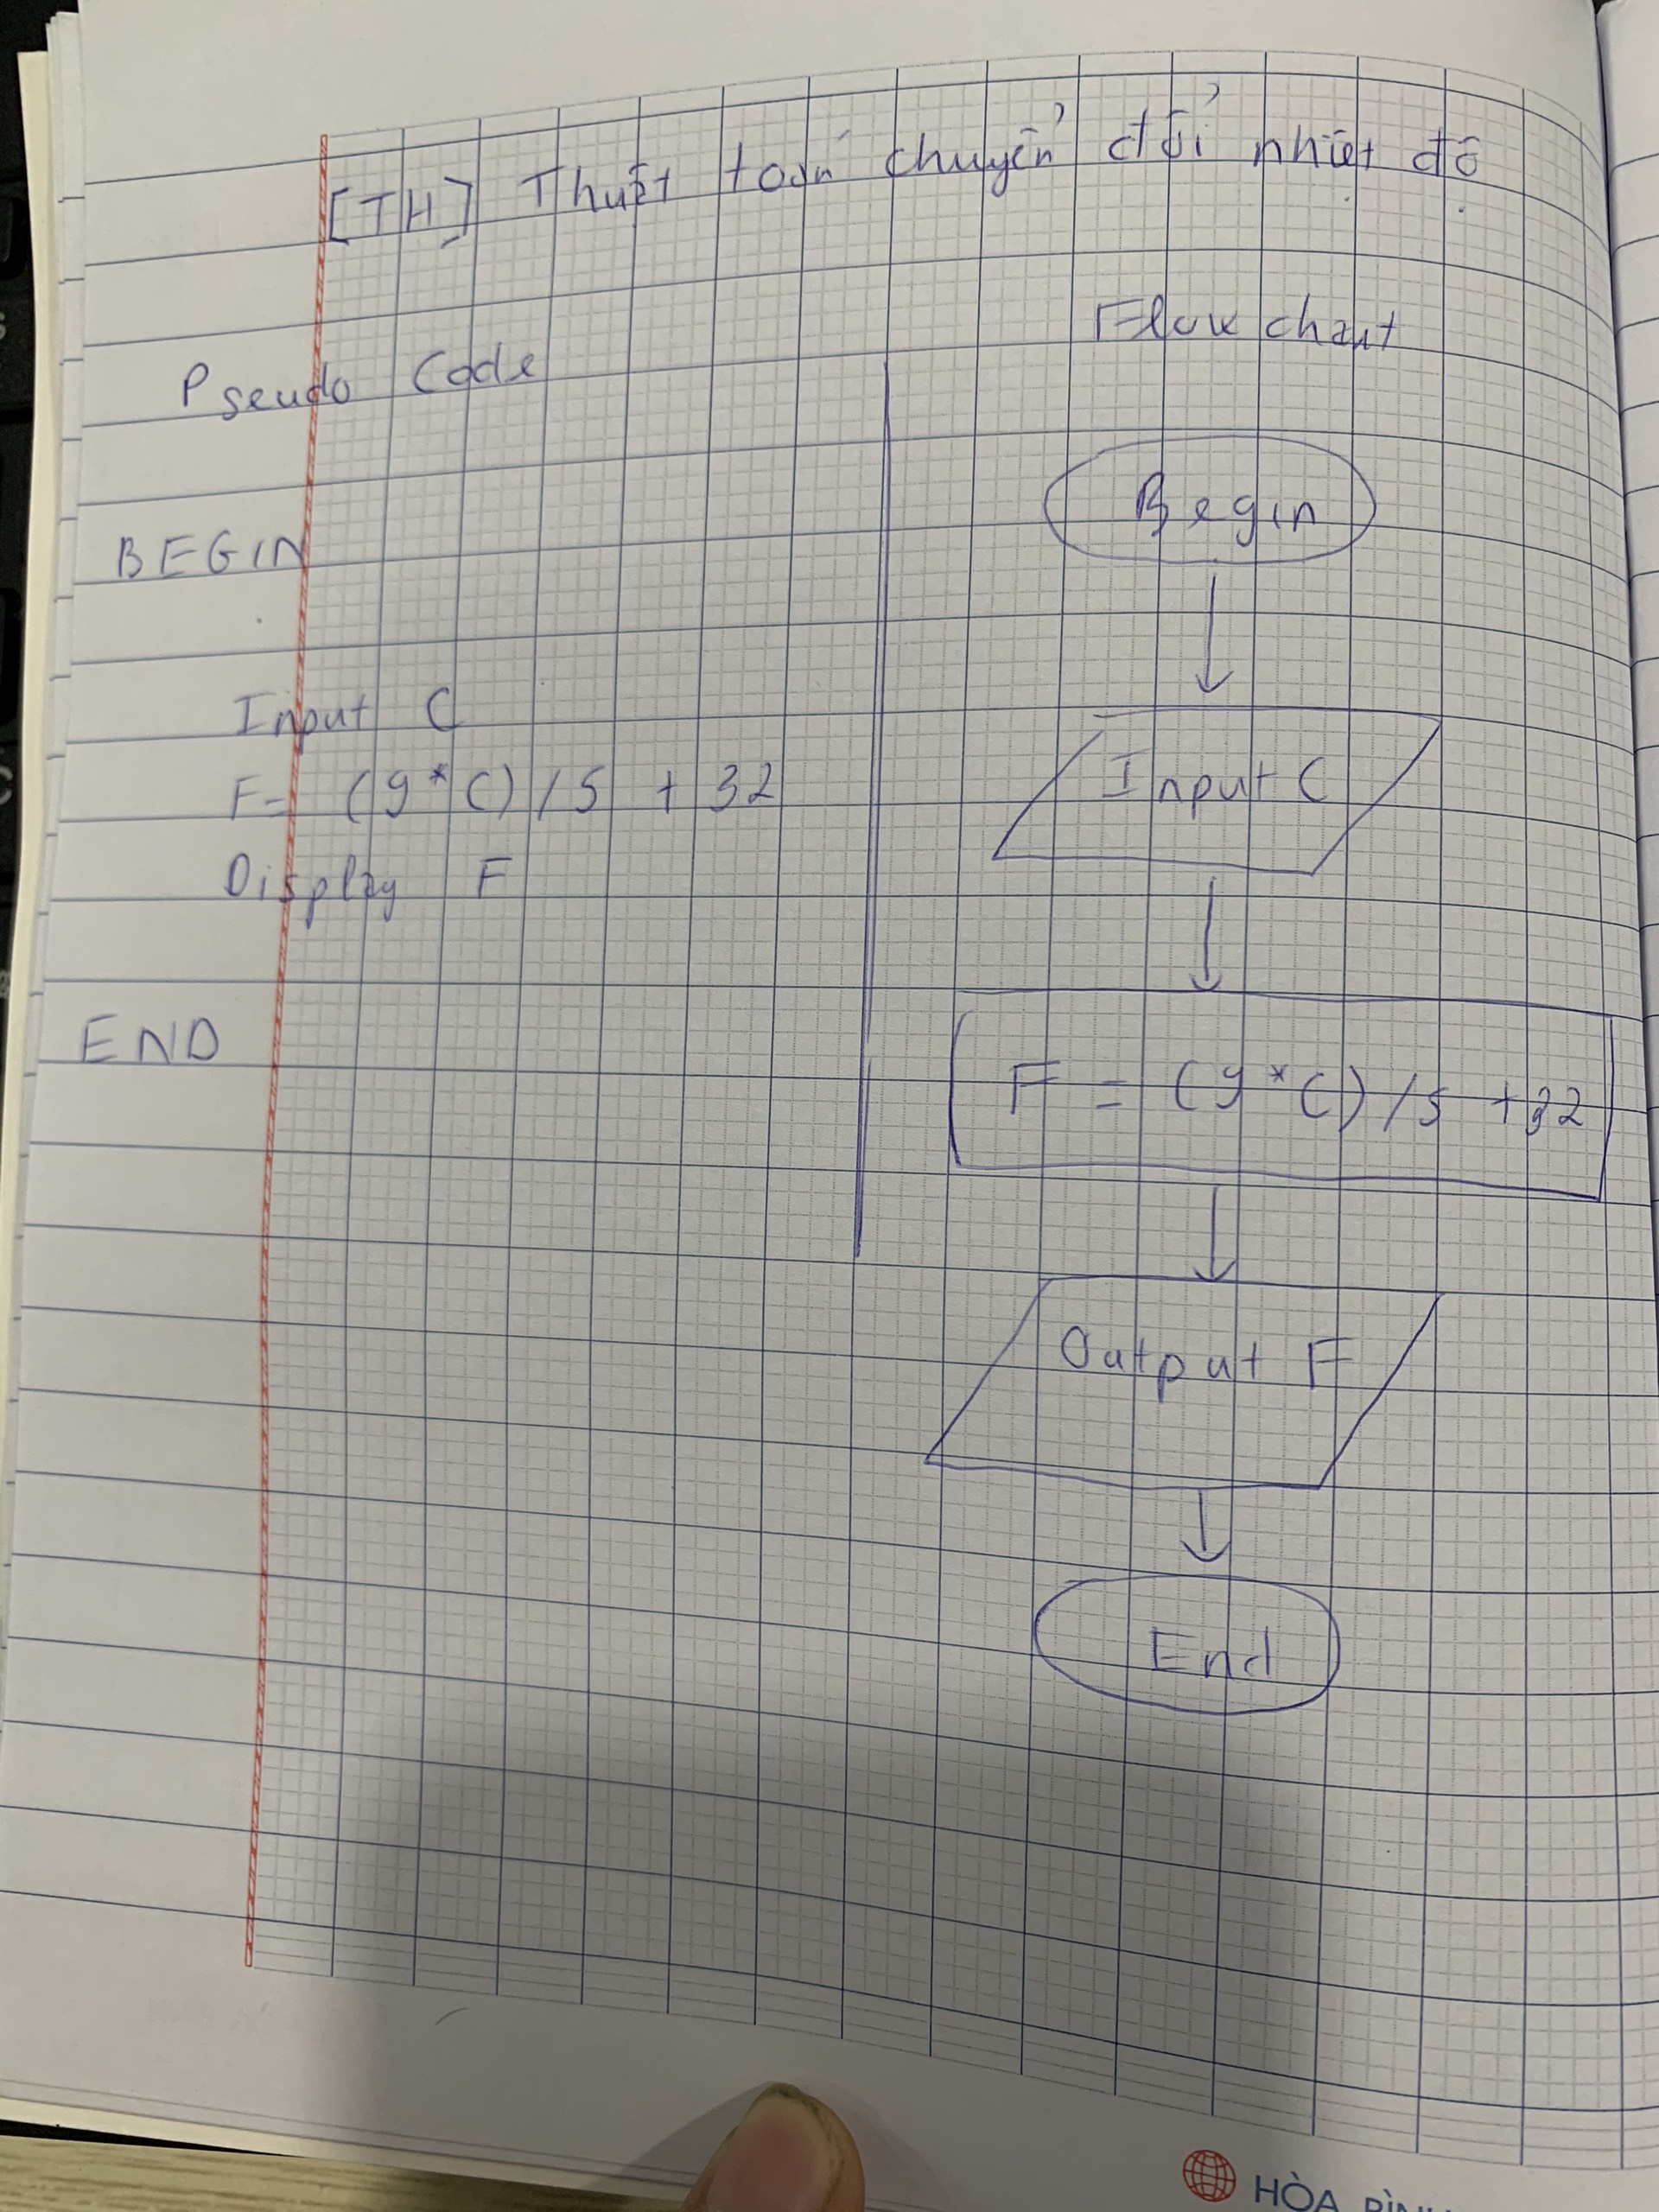 [TH] Thuật toán chuyển đổi nhiệt độ
Pseudo Code
BEGIN
Input C
F= (9*C)/5 + 32
Display F
END
Flow chart
Begin
Input C
F = (9*C)/5 +32
Output F
End
HÒA BÌNH